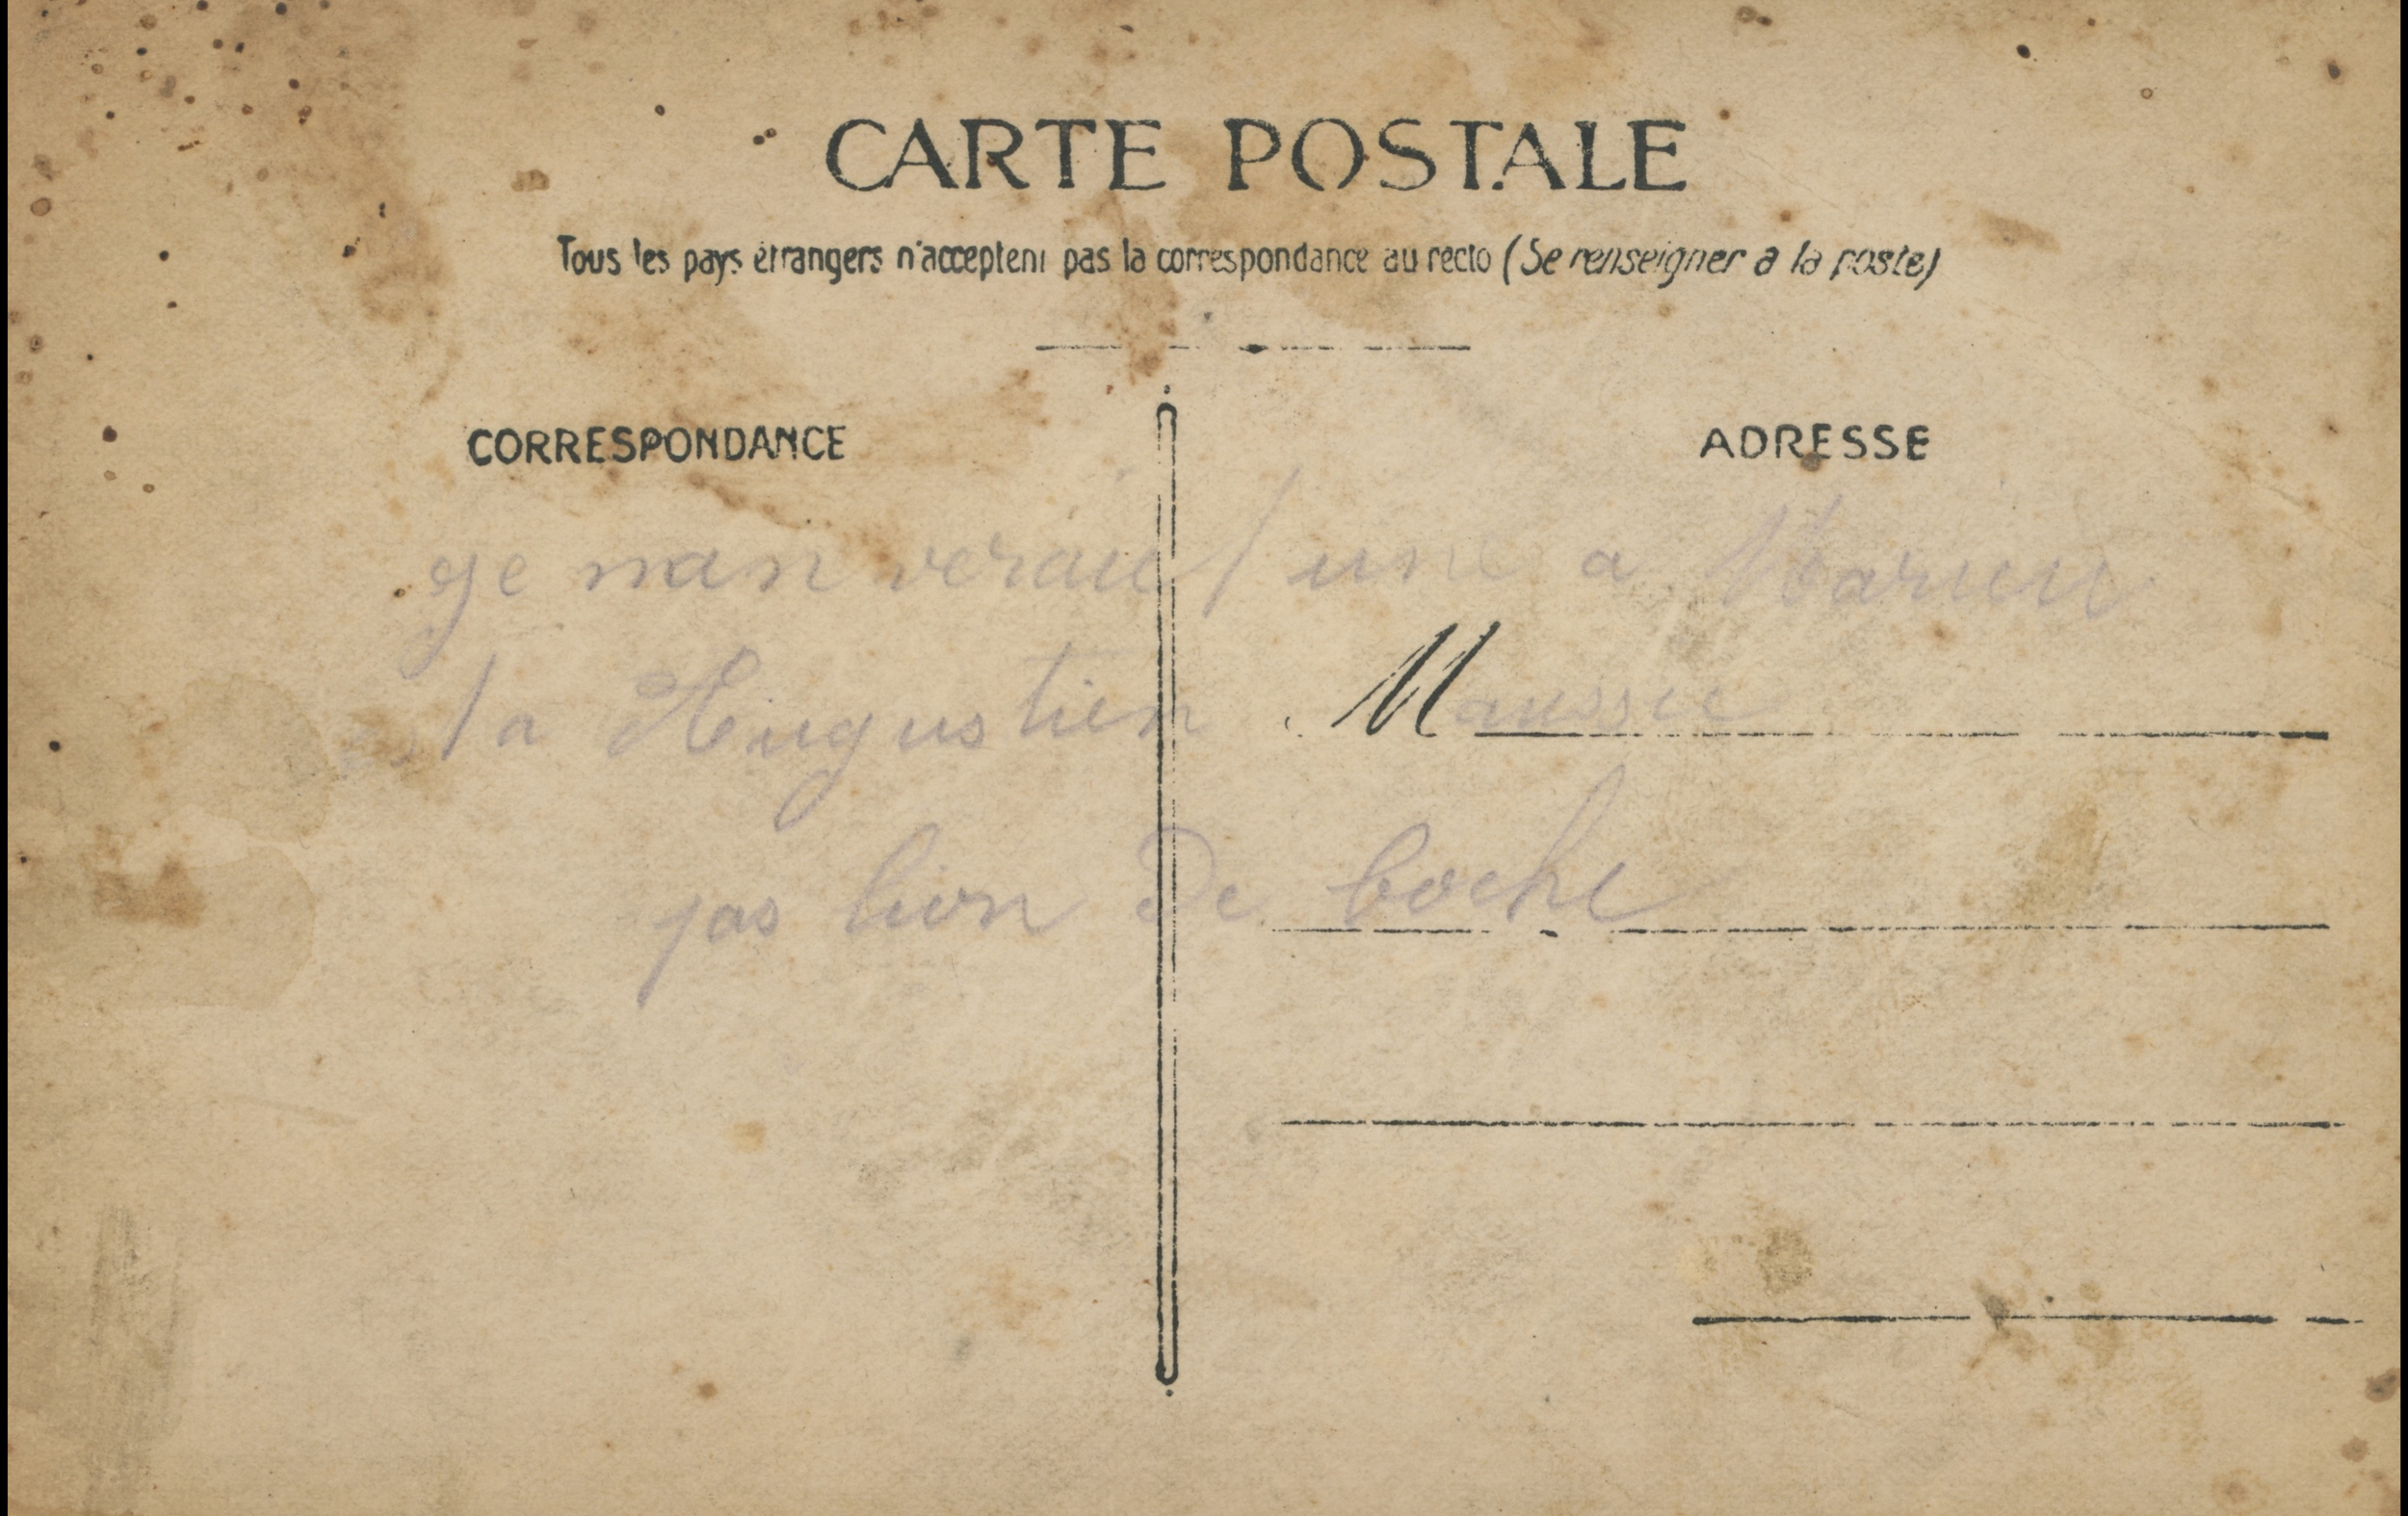 CARTE POSTALE
Tous les pays étrangers n'acceptent pas la correspondance au recto (Se renseigner à la poste)
CORRESPONDANCE
ADRESSE
ge nan verai une a
a Augustien Maussie
pas bon De boche